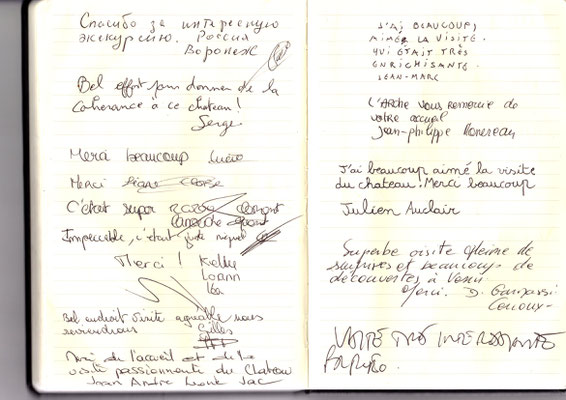 Спасибо за интересную
экскурсию. Россия
Воронеж
Bel effort pour donner de la
Cohérance à ce château !
Serge
Merci beaucoup
Merci
C'était super
Impeccable, c'était juste
Merci ! Kelly
Loann
Bel endroit visite agréable nous
reviendrons
Gilles
Merci de l'accueil et de la
visite passionnante du Chateau
Jean André
J'AI BEAUCOUP,
AIMÉR LA VISITE.
QUI ÉTAIT TRÈS
ENRICHISANTE.
JEAN-MARC
L'Arche vous remercie de
votre accueil
Jean-philippe
J'ai beaucoup aimé la visite
du chateau ! Merci beaucoup
Julien Auclair
Superbe visite pleine de
surprises et beaucoup de
découvertes à venir
Merci. D.
VISITE TRÈS INTERESSANTE